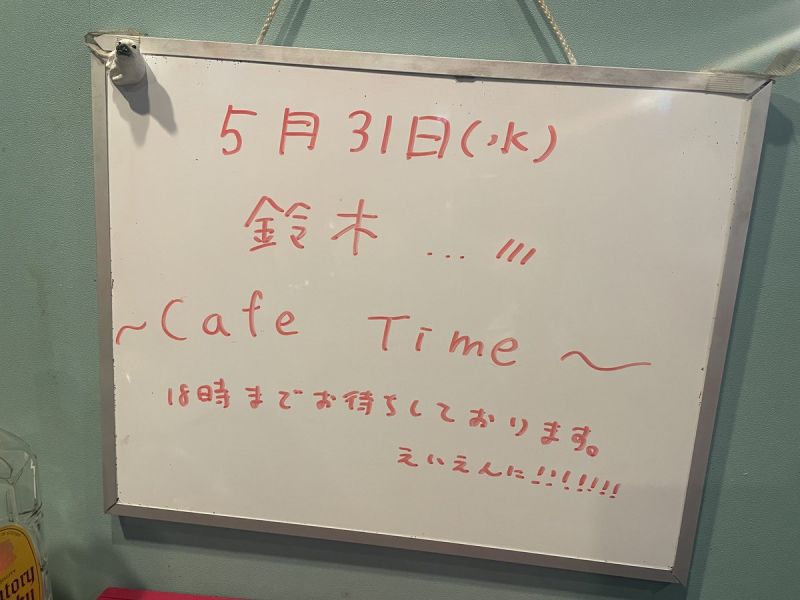 5月31日(水)
鈴木 ... 〃
~Cafe Time~
18時までお待ちしております。
えいえんに!!!!!!!